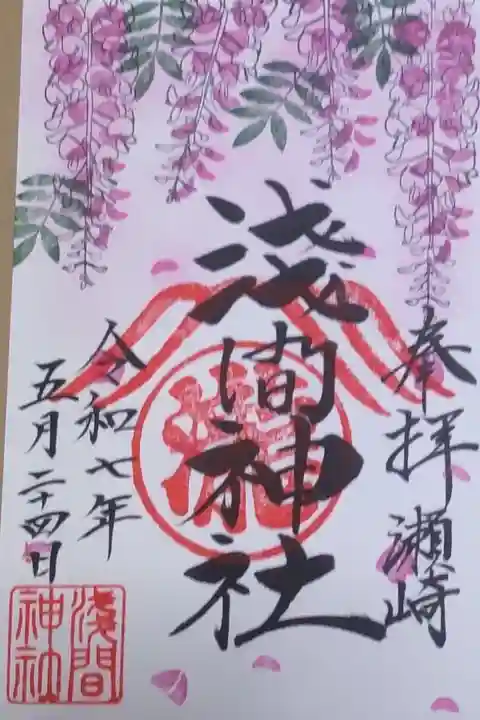 奉拝 瀬崎
淺間神社
令和七年
五月二十四日
淺間
神社